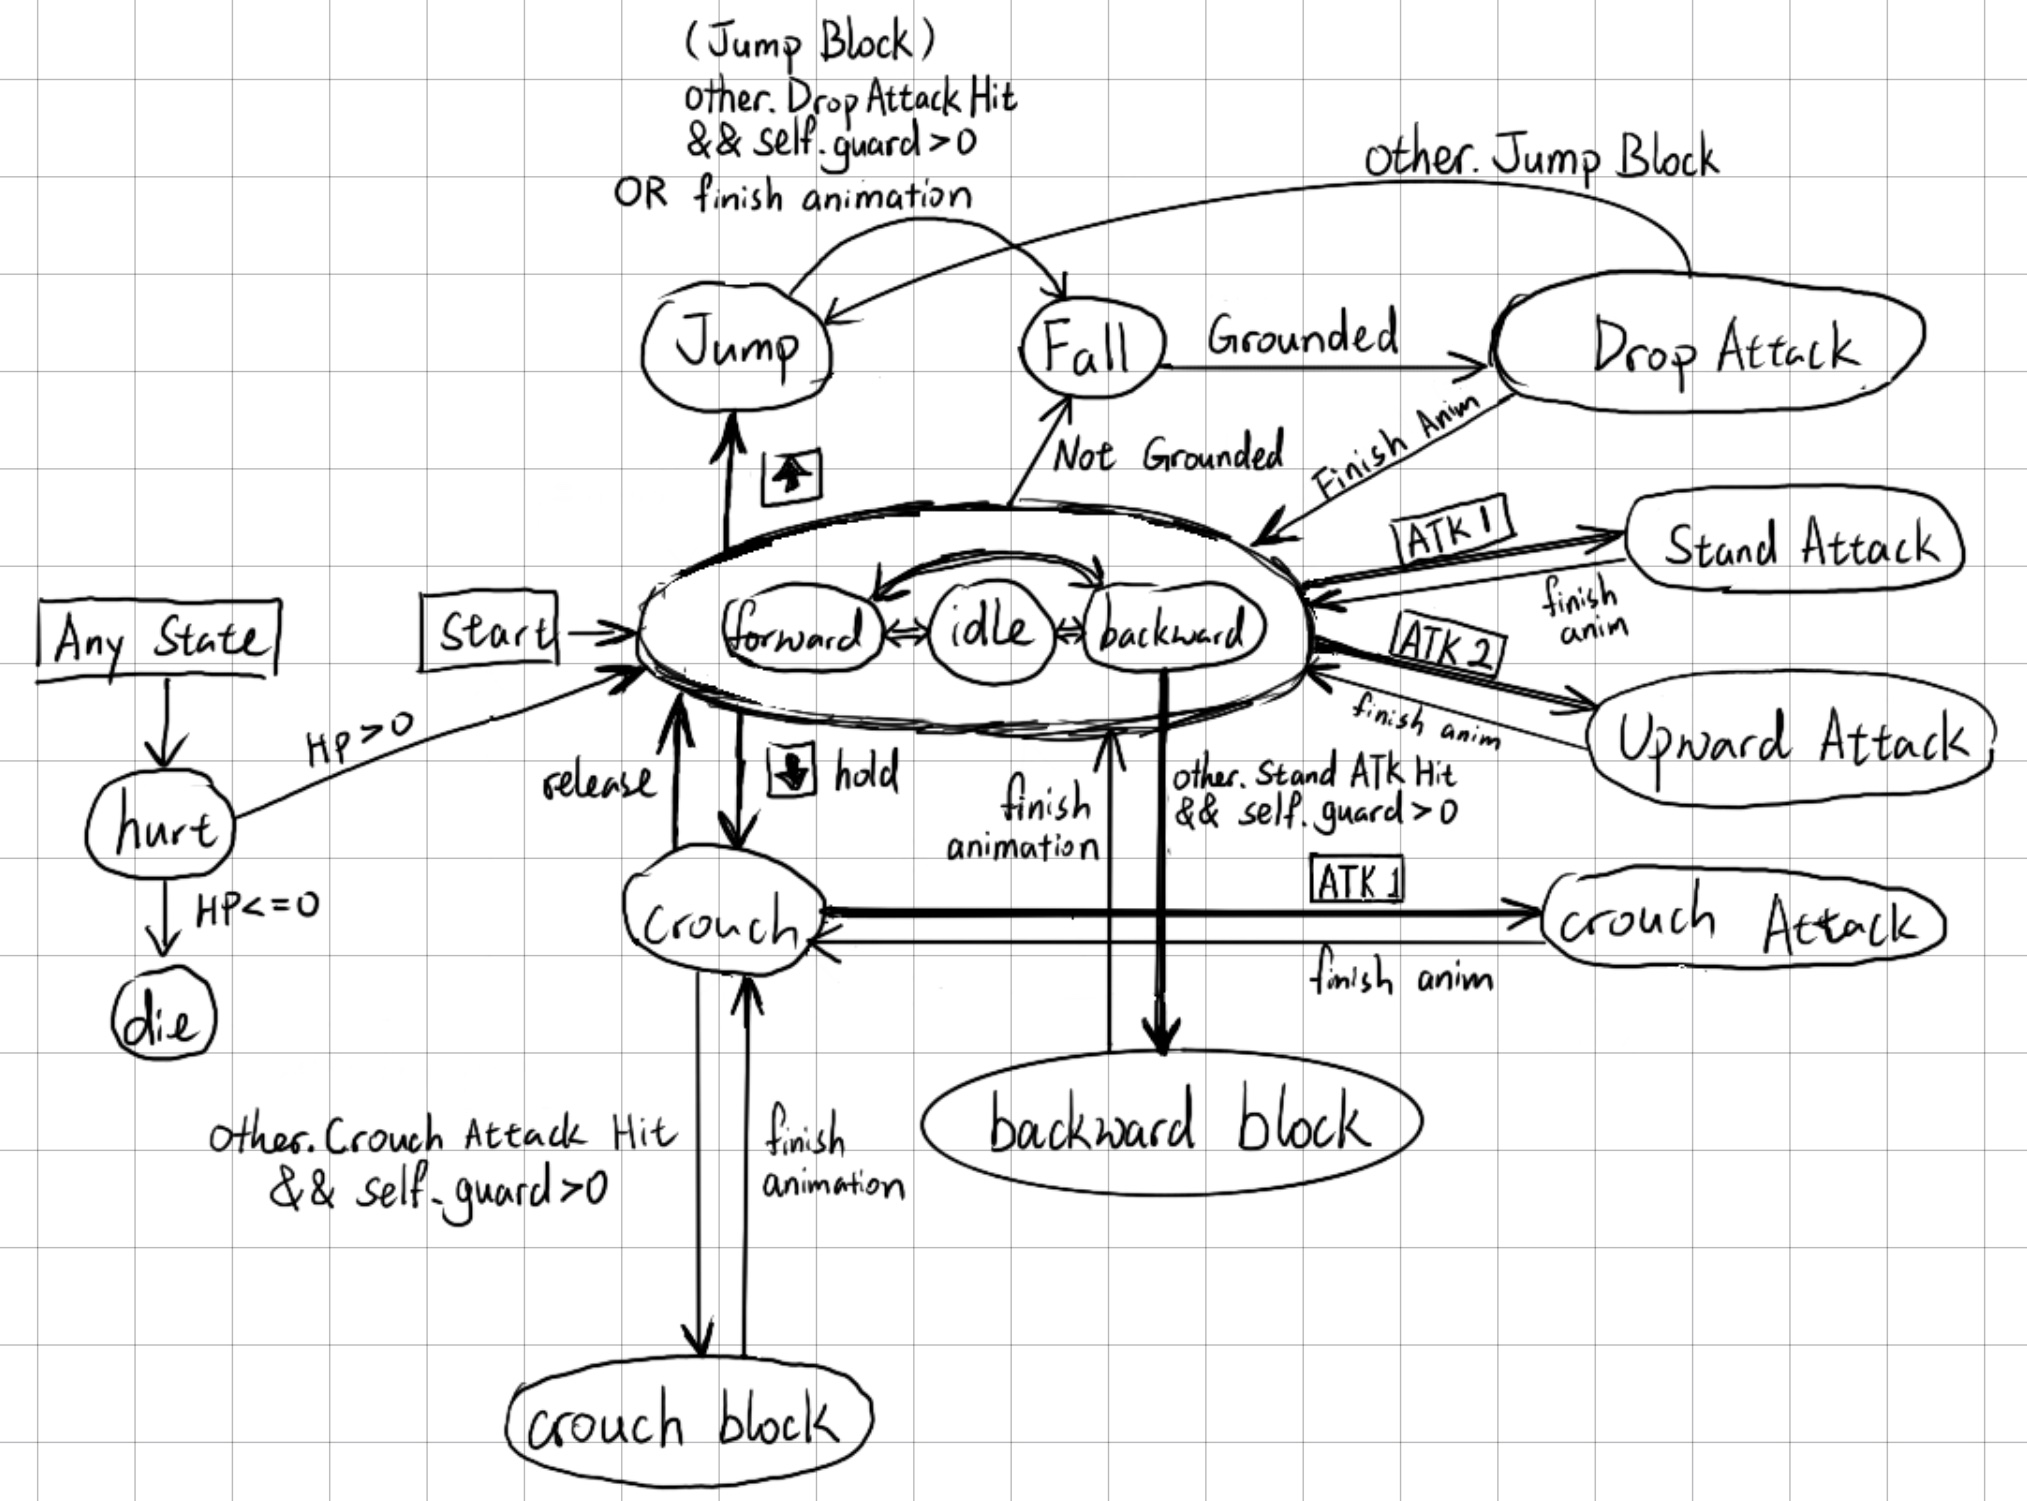 (Jump Block)
other. Drop Attack Hit
&& self. guard > 0
OR finish animation
other. Jump Block
Jump
Fall
Grounded
Drop Attack
Not Grounded
Finish Anim
ATK 1
Stand Attack
finish
anim
Any State
Start
forward
idle
backward
ATK 2
finish anim
Upward Attack
HP > 0
hurt
release
hold
finish
animation
other. Stand ATK Hit
&& self. guard > 0
HP <= 0
die
Crouch
ATK 1
crouch Attack
finish anim
other. Crouch Attack Hit
&& self. guard > 0
finish
animation
backward block
crouch block